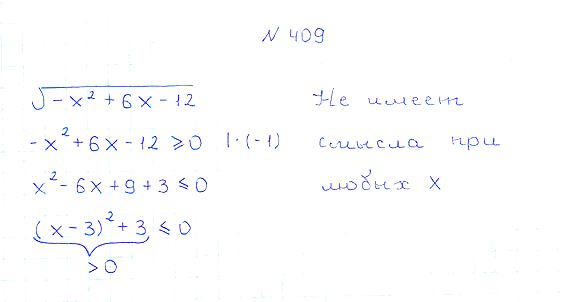 N 409
√(-x² + 6x - 12)
-x² + 6x - 12 ⩾ 0 | · (-1)
x² - 6x + 9 + 3 ⩽ 0
(x - 3)² + 3 ⩽ 0
> 0
Не имеет
смысла при
любых x